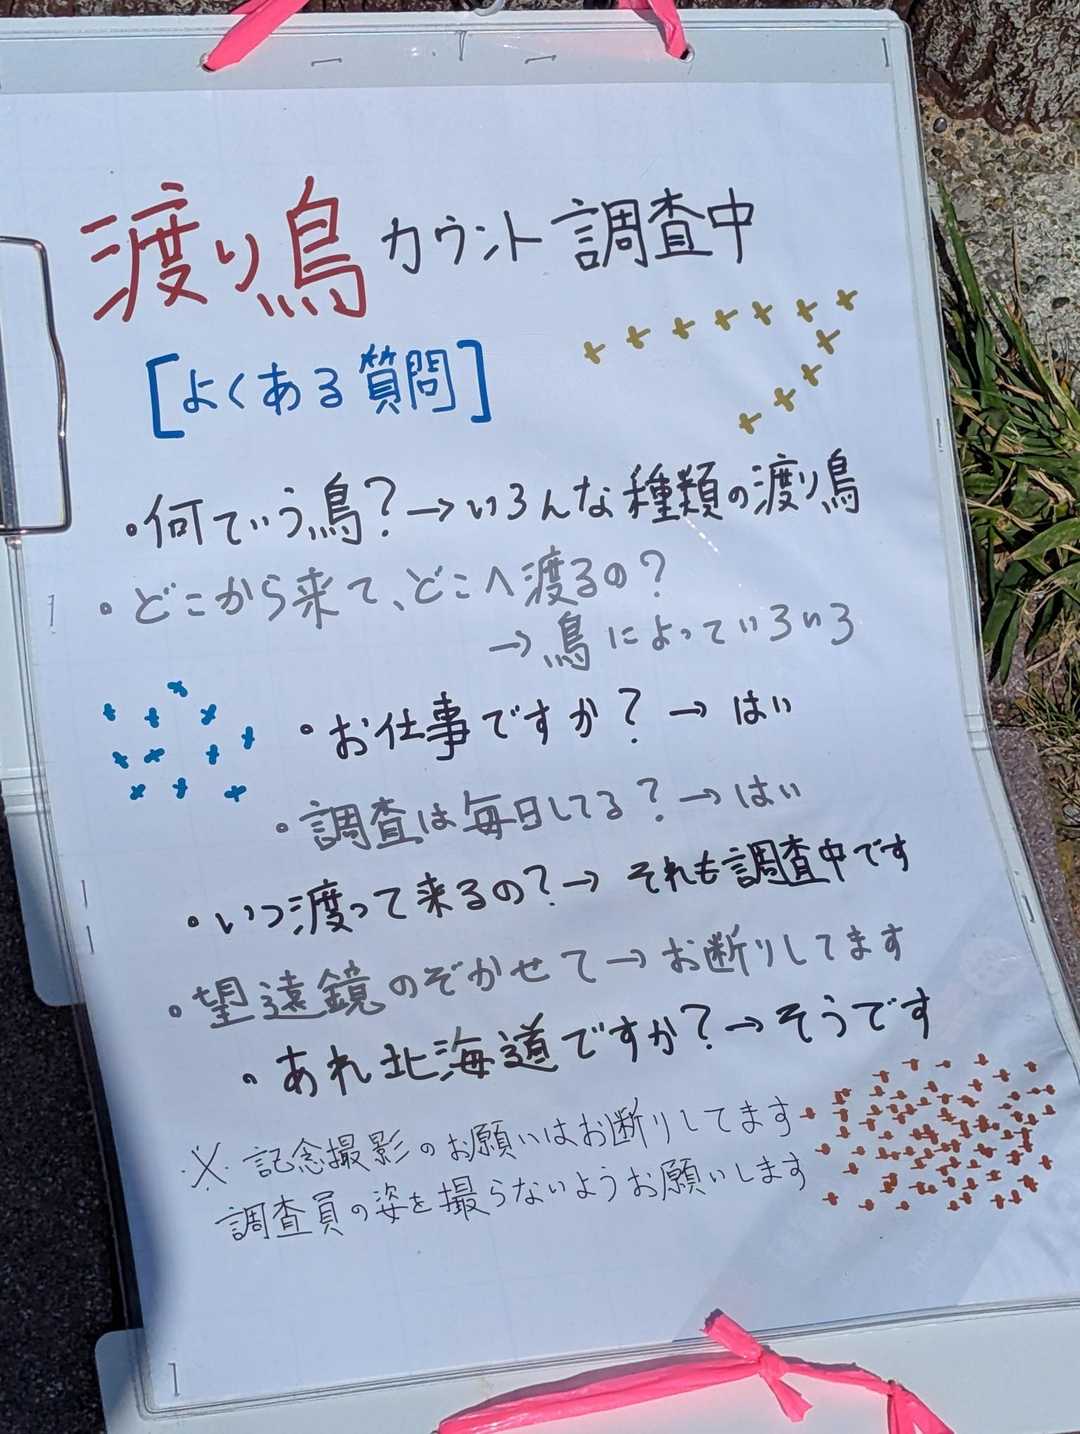 渡り鳥カウント調査中
[よくある質問]
・何ていう鳥?→いろんな種類の渡り鳥
・どこから来て、どこへ渡るの?
→鳥によっていろいろ
・お仕事ですか?→はい
・調査は毎日してる?→はい
・いつ渡って来るの?→それも調査中です
・望遠鏡のぞかせて→お断りしてます
・あれ北海道ですか?→そうです
※記念撮影のお願いはお断りしてます
調査員の姿を撮らないようお願いします